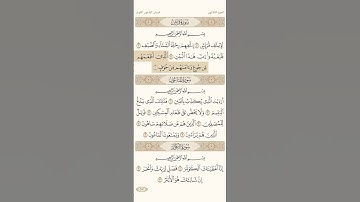 سورة قريش
بسم الله الرحمن الرحيم
لإيلاف قريش إيلافهم رحلة الشتاء والصيف
فليعبدوا رب هذا البيت الذي أطعمهم
من جوع وآمنهم من خوف
سورة الماعون
بسم الله الرحمن الرحيم
أرأيت الذي يكذب بالدين فذلك الذي يدع
اليتيم ولا يحض على طعام المسكين فويل
للمصلين الذين هم عن صلاتهم ساهون
الذين هم يراءون ويمنعون الماعون
سورة الكوثر
بسم الله الرحمن الرحيم
إنا أعطيناك الكوثر فصل لربك وانحر
إن شانئك هو الأبتر